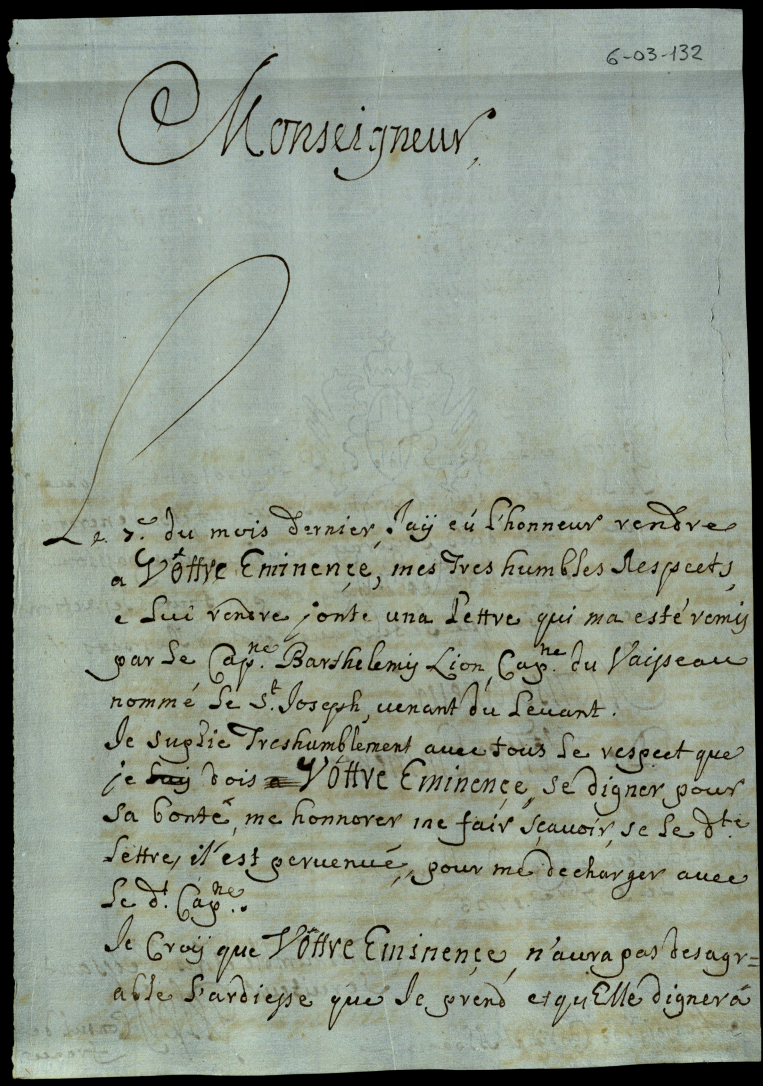 6-03-132
Monseigneur,
Le 7.e du mois dernier, Jaÿ eú l'honneur rendre
a Vôttre Eminençe, mes Tres humbles Respects,
e Lui rendre jonte una Lettre qui ma esté remis
par le Cap.ne Barthelemij Lion, Cap.ne du Vaisseau
nommé le S.t Joseph, venant du Levant.
Je suplie Treshumblement avec tous le respect que
je dois Vôttre Eminençe, se digner pour
sa bonté, me honnorer me fair sçavoir, se le d.te
Lettre, il est pervenuê, pour me decharger avec
le d.t Cap.ne.
Je Croij que Vôttre Eminençe, n'aura pas desagr=
able l'ardiesse que Je prend et qu'Elle dignerá